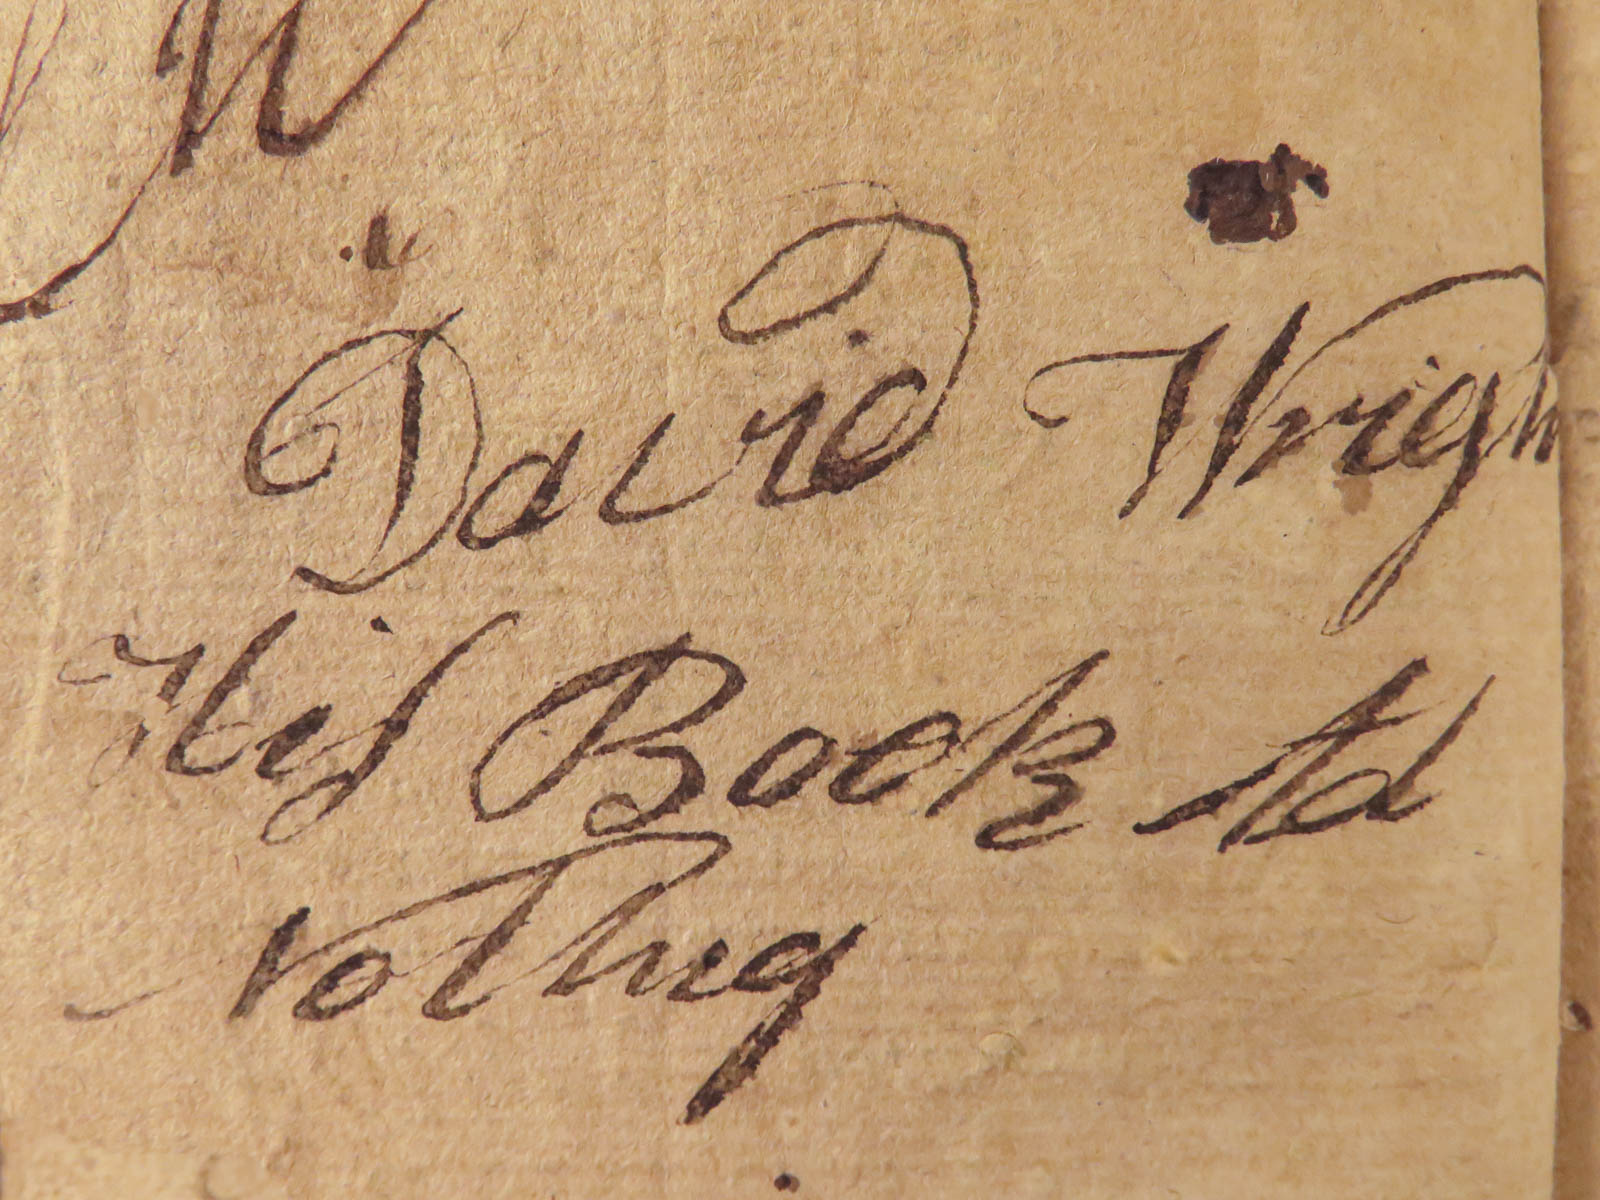 David Wrigh
His Book &d
nothing